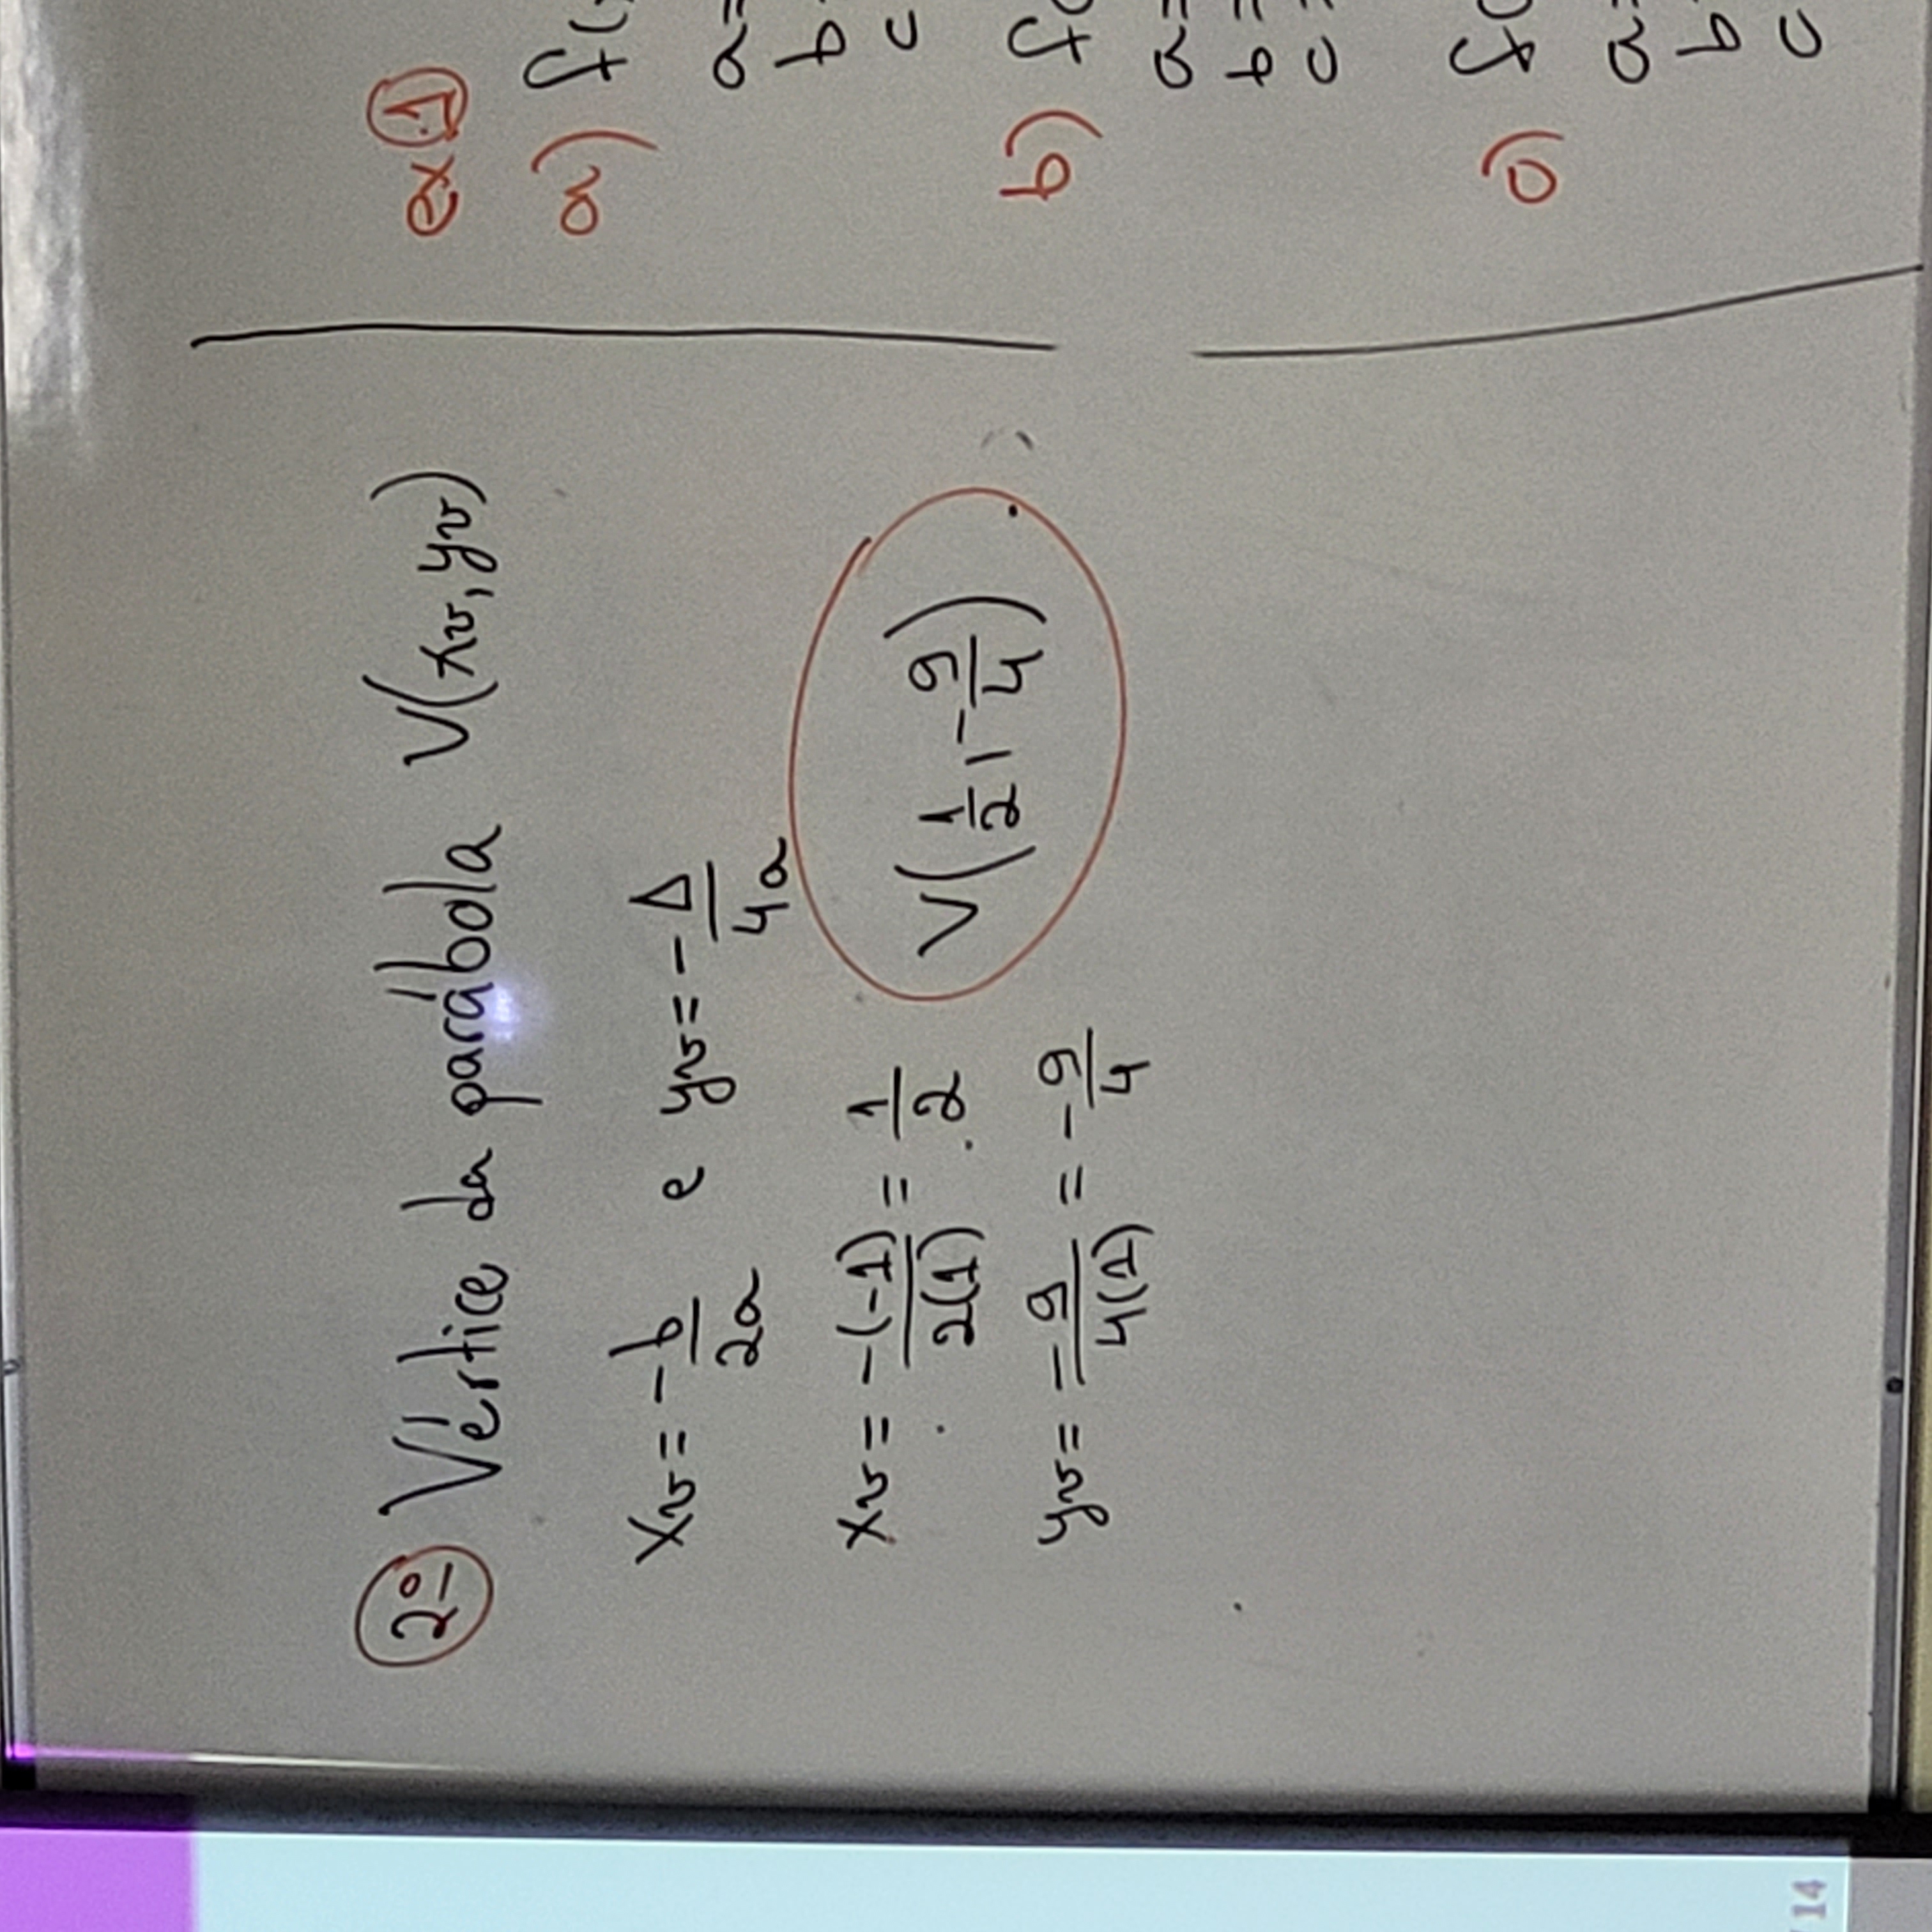 2º Vértice da parábola V(xv, yv)
xv = -b/2a e yv = -Δ/4a
xv = -(-1)/2(1) = 1/2
yv = -9/4(1) = -9/4
V(1/2, -9/4)
ex 1
a) f(x
a=
b=
c
b) f(
a=
b=
c=
c) f(
a=
b
c
14